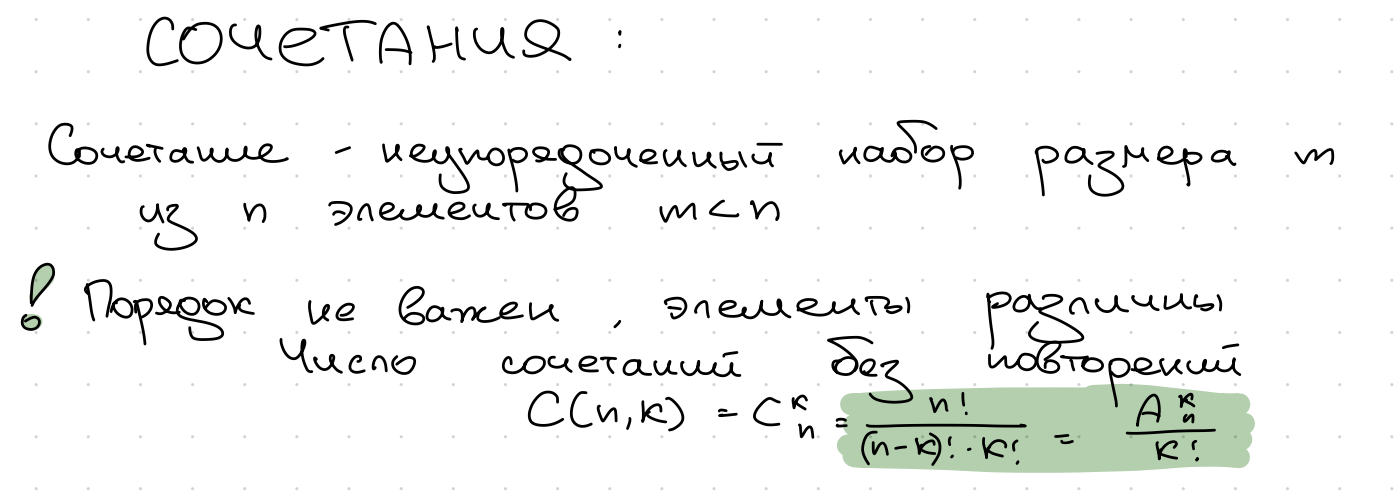 СОЧЕТАНИЯ :
Сочетание - неупорядоченный набор размера m
из n элементов m<n
! Порядок не важен, элементы различны
Число сочетаний без повторений
C(n,k) = C_n^k = n!/((n-k)!·k!) = A_n^k/k!